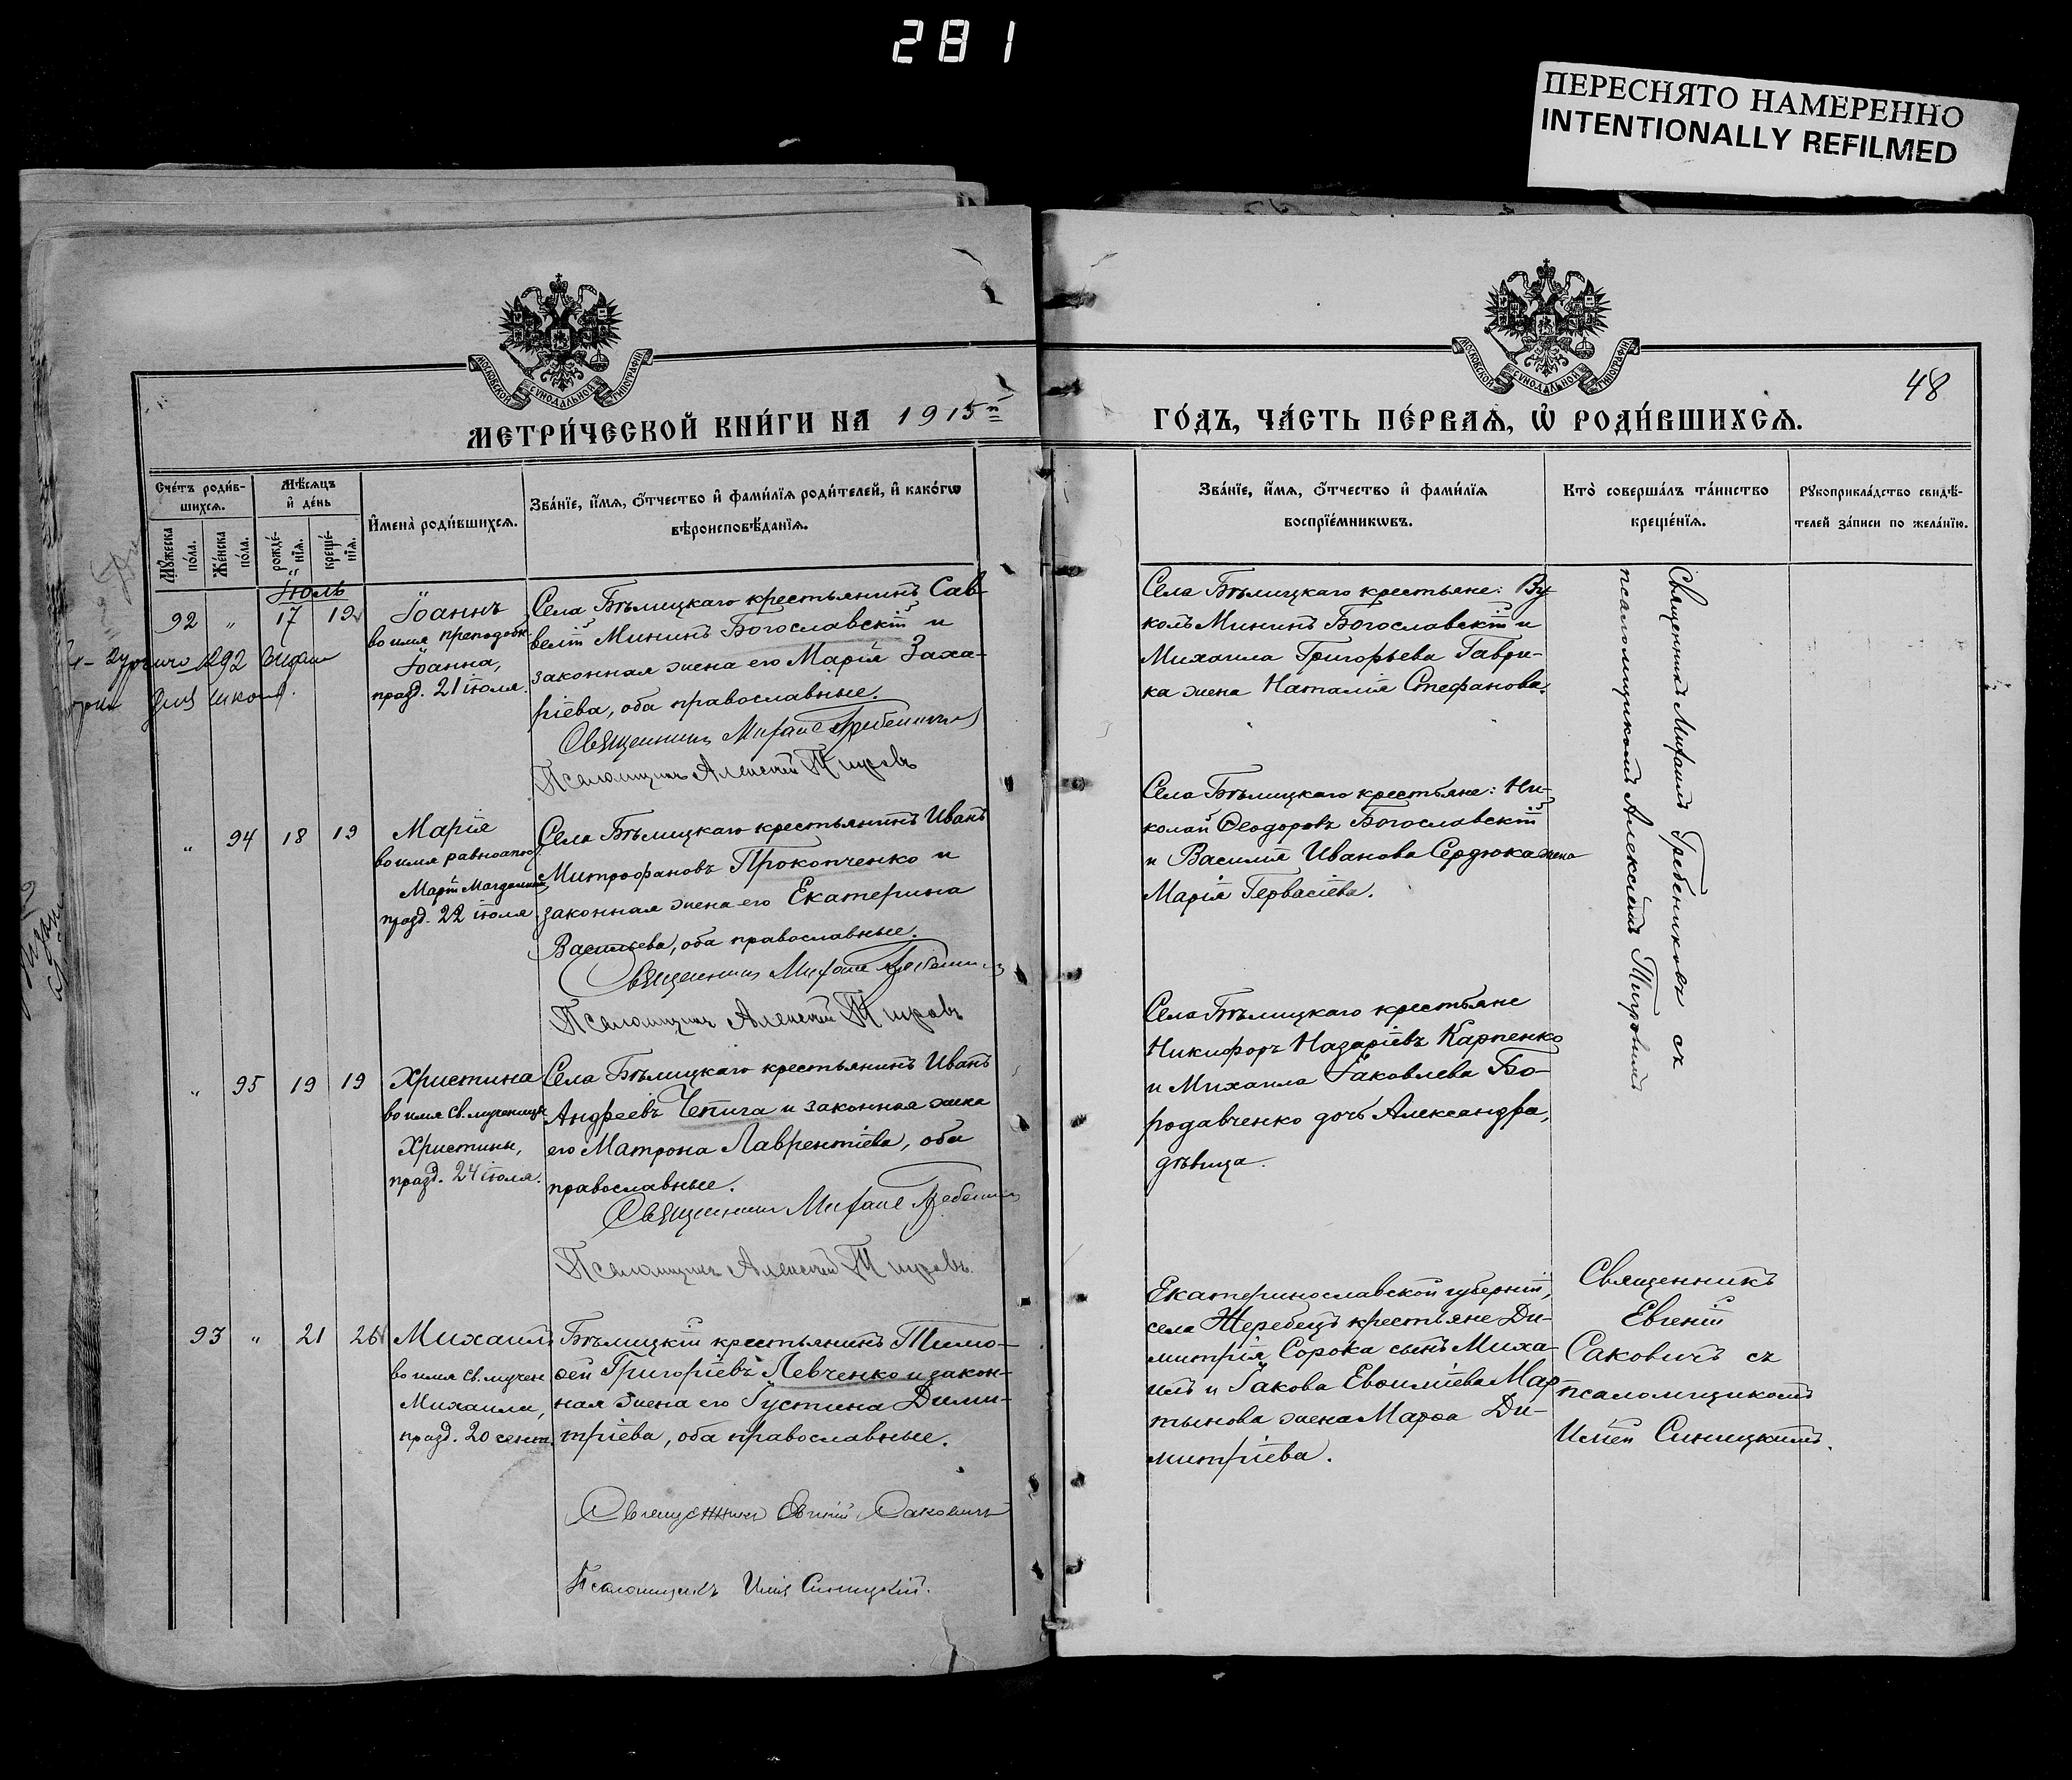 281
ПЕРЕСНЯТО НАМЕРЕННО
INTENTIONALLY REFILMED
МОСКОВСКОЙ СѴНОДАЛЬНОЙ ТИПОГРАФІИ
МОСКОВСКОЙ СѴНОДАЛЬНОЙ ТИПОГРАФІИ
48
МЕТРИ́ЧЕСКОЙ КНИ́ГИ НА 1915й
ГО́ДЪ, ЧА́СТЬ ПЕ́РВАѦ, Ѡ҆ РОДИ́ВШИХСѦ.
Сче́тъ роди́в-
шихсѧ.
Мѣ́сѧцъ
и҆ де́нь
Мꙋ́жеска
по́ла.
Же́нска
по́ла.
рожде́-
нїѧ.
креще́-
нїѧ.
И҆мена̀ роди́вшихсѧ.
Зва́нїе, и҆́мѧ, ѻ҆́тчество и҆ фами́лїѧ роди́телей, и҆ како́гѡ
вѣроисповѣ́данїѧ.
Зва́нїе, и҆́мѧ, ѻ҆́тчество и҆ фами́лїѧ
воспрїе́мникѡвъ.
Кто̀ соверша́лъ та́инство
креще́нїѧ.
Рꙋкоприкла́дство свидѣ́-
телей за́писи по жела́нїю.
Іюль
92 " 17 19
Іоаннъ
во имя преподобн.
Іоанна,
празд. 21 іюля.
Села Бѣлицкаго крестьянинъ Сав-
велій Мининъ Богославскій и
законная жена его Марія Заха-
ріева, оба православные.
Священникъ Михаил Гребенниковъ
Псаломщикъ Алексѣй Тировъ
292 выдан
для школы.
Села Бѣлицкаго крестьяне: Ву-
колъ Мининъ Богославскій и
Михаила Григорьева Гаври-
ка жена Наталія Стефанова.
Священникъ Михаилъ Гребенниковъ съ
псаломщикомъ Алексѣемъ Тировымъ
" 94 18 19
Марія
во имя равноапос.
Маріи Магдалины,
празд. 22 іюля.
Села Бѣлицкаго крестьянинъ Иванъ
Митрофановъ Прокопченко и
законная жена его Екатерина
Васильева, оба православные.
Священникъ Михаил Гребенников
Псаломщикъ Алексѣй Тировъ
Села Бѣлицкаго крестьяне: Ни-
колай Ѳеодоровъ Богославскій
и Василія Иванова Сердюка жена
Марія Гервасіева.
" 95 19 19
Христина
во имя Св. мученицы
Христины,
празд. 24 іюля.
Села Бѣлицкаго крестьянинъ Иванъ
Андреевъ Чепига и законная жена
его Матрона Лаврентіева, оба
православные.
Священникъ Михаил Гребенников
Псаломщикъ Алексѣй Тировъ.
Села Бѣлицкаго крестьяне
Никифоръ Назаріевъ Карпенко
и Михаила Іаковлева Бо-
родавченко дочь Александра,
дѣвица.
93 " 21 26
Михаилъ
во имя св. мучен
Михаила,
празд. 20 сент.
Бѣлицкій крестьянинъ Тимо-
ѳей Григоріевъ Левченко и закон-
ная жена его Іустина Дими-
тріева, оба православные.
Священникъ Евгеній Саковичъ
Псаломщикъ Илія Синицкій.
Екатеринославской губерніи,
села Жеребецъ крестьяне Ди-
митрія Сорока сынъ Миха-
илъ и Іакова Евѳиміева Мар-
тынова жена Марѳа Ди-
митріева.
Священникъ
Евгеній
Саковичъ съ
псаломщикомъ
Иліей Синицкимъ.